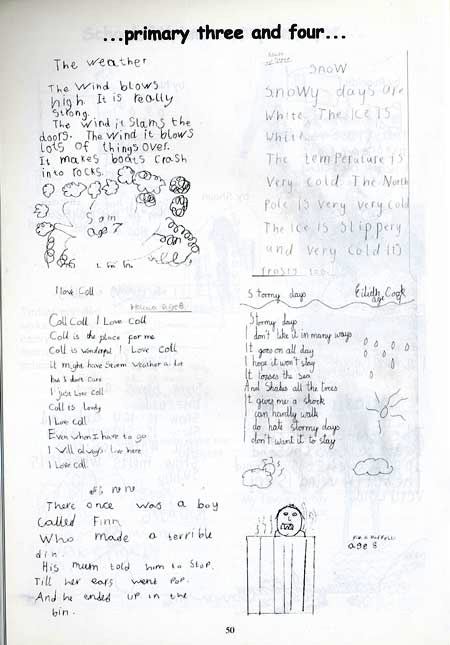 ...primary three and four...
The weather
The Wind blows
high It is really
strong.
The wind it Slams the
doors. The Wind it blows
lots of things over.
It makes boats crash
into rocks.
Sam
age 7
Snow
Snowy days are
White. The Ice is
White.
The temperature is
Very cold. The North
Pole is very very cold
The Ice is Slippery
and very cold Its
frosty too.
I love Coll
age 8
Coll Coll I Love Coll
Coll is the place for me
Coll is wonderful I Love Coll
It might have Storm Weather a lot
but I don't Care
I just Love Coll
Coll is Lovely
I Love Coll
Even when I have to go
I will always live here
I Love Coll.
Stormy days
Eilidh Cook
age
Stormy days
I don't like it in many ways
It goes on all day
I hope it won't stay
It tosses the sea
And Shakes all the trees
It gives me a shock
I can hardly walk
I do hate stormy days
I don't want it to stay
There once was a boy
Called Finn
Who made a terrible
din.
His mum told him to Stop.
Till her ears went Pop.
And he ended up in the
bin.
age 8
50